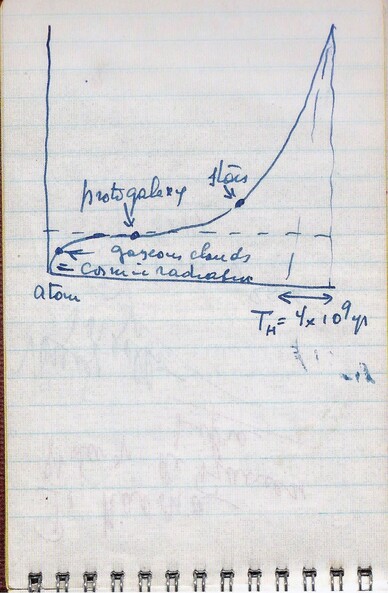 stars
protogalaxy
gaseous clouds
= cosmic radiation
atom
T_H = 4 x 10^9 yr